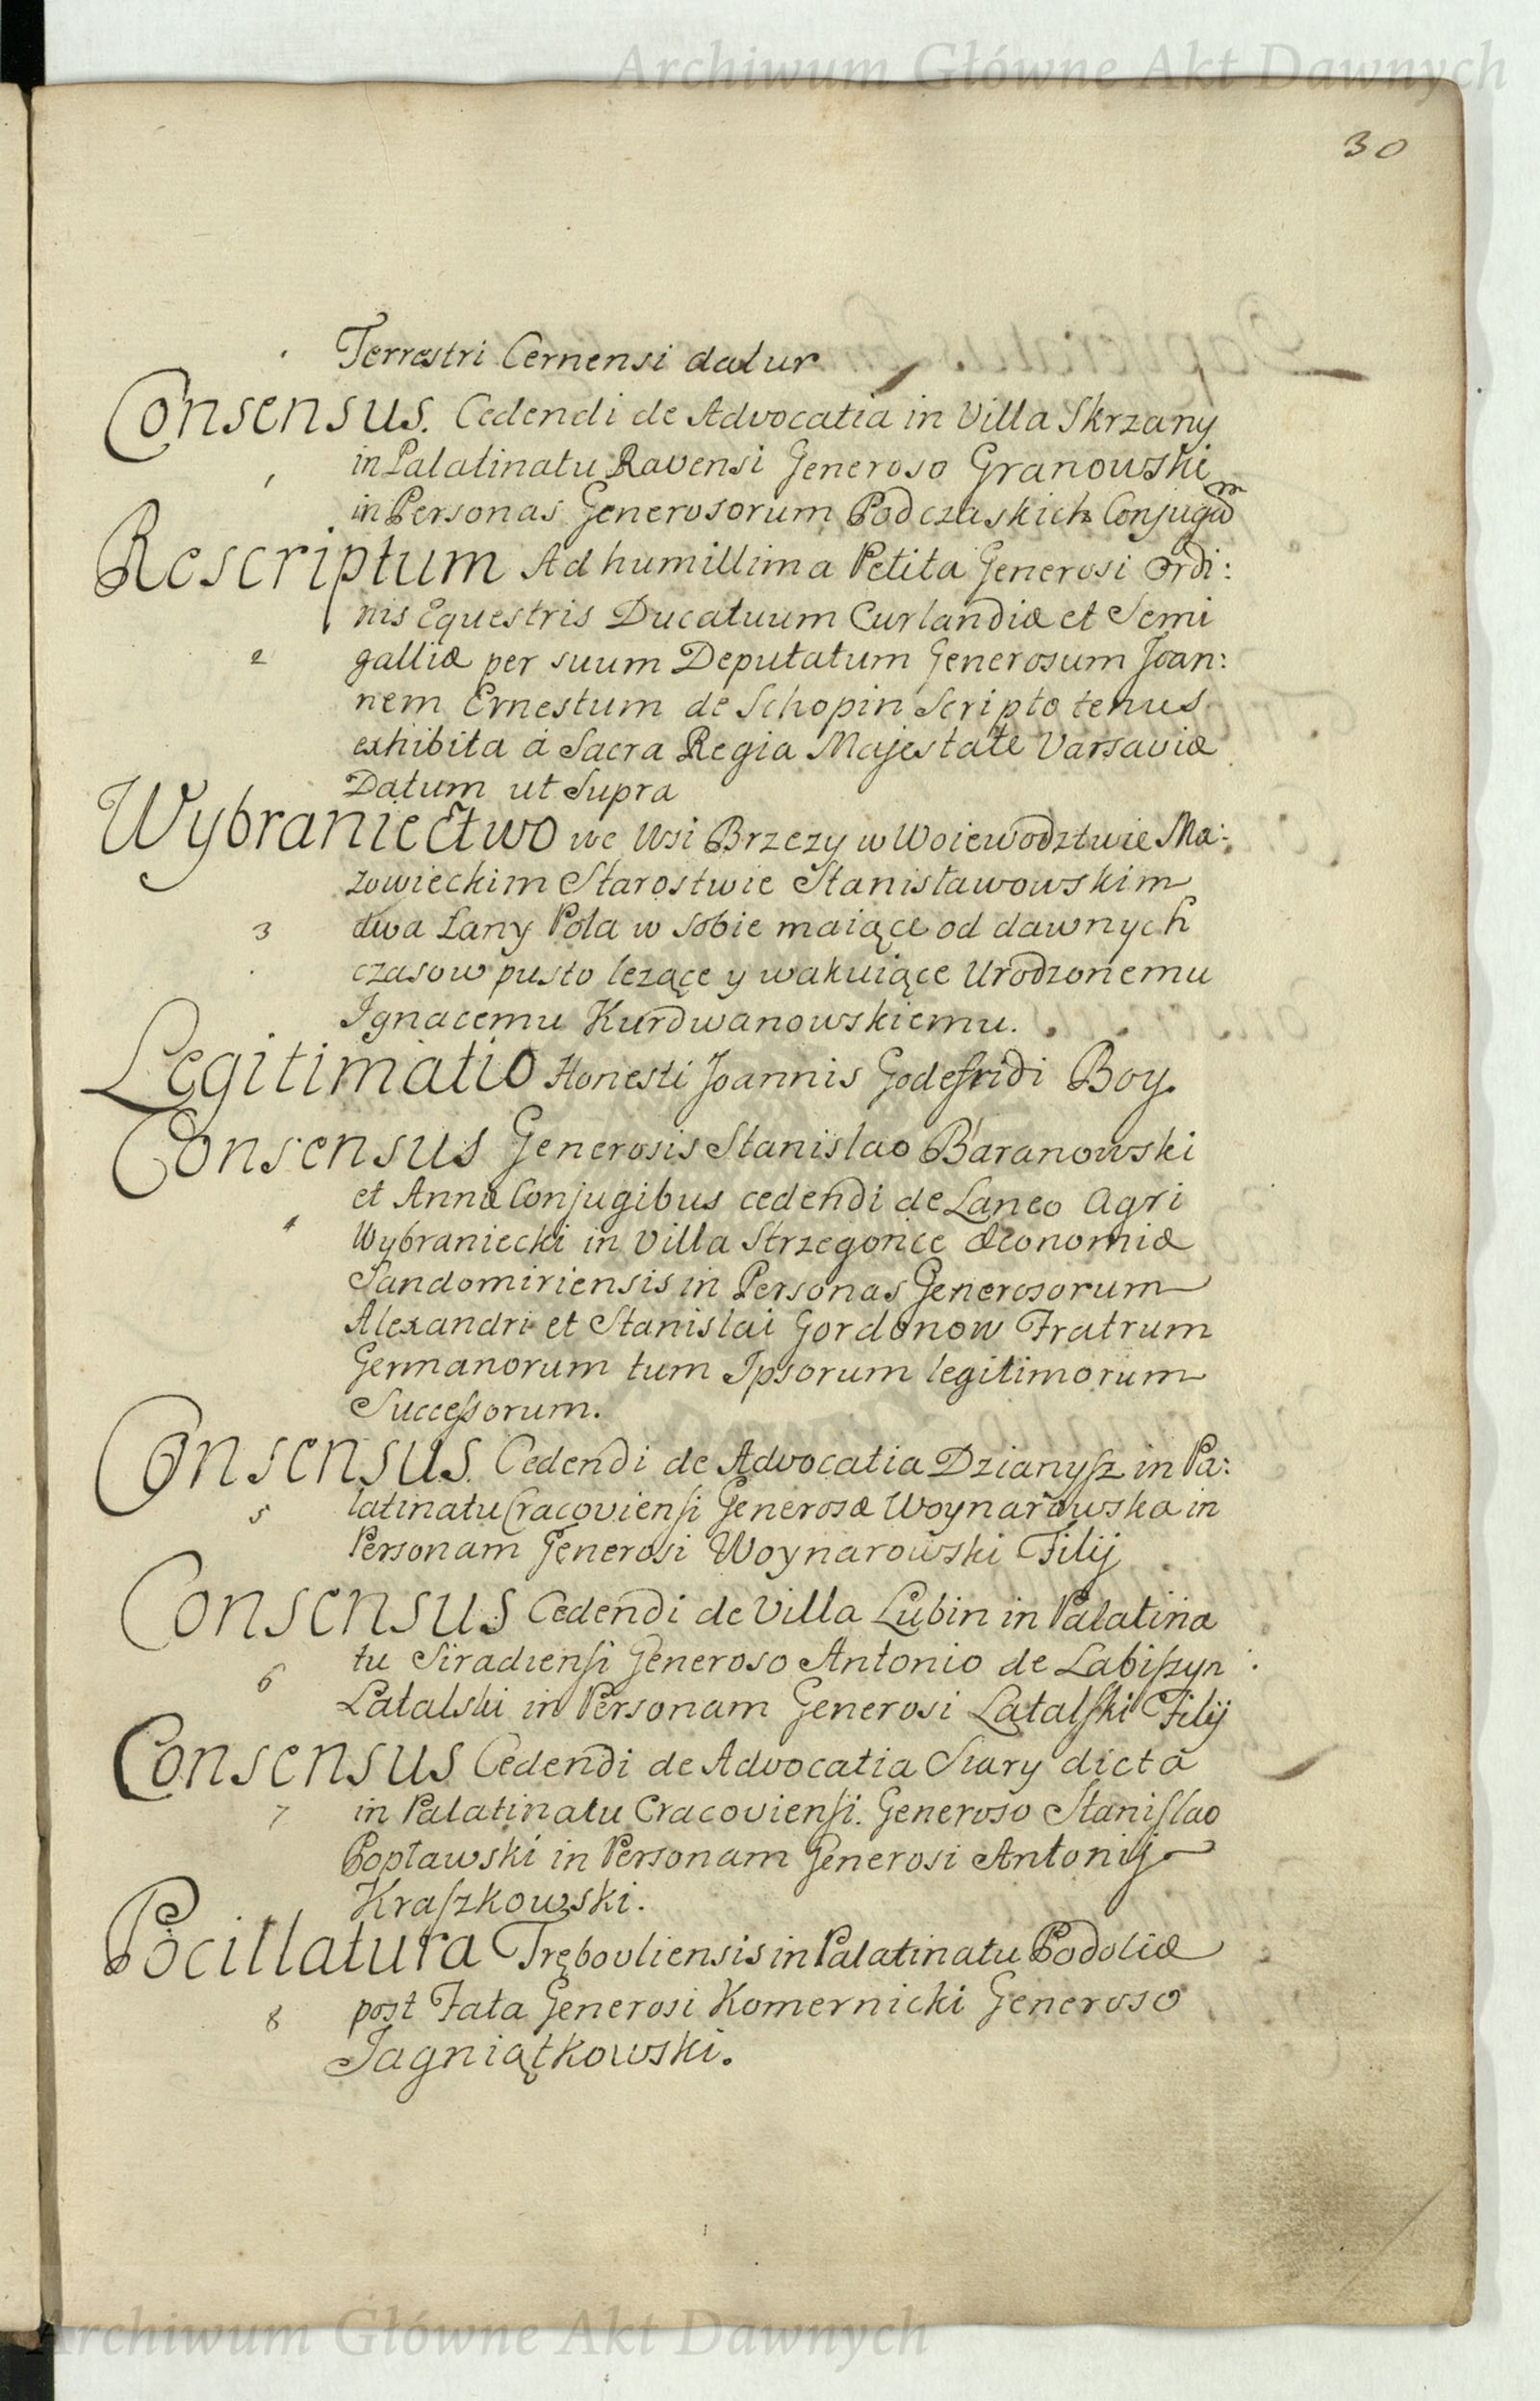 Archiwum Główne Akt Dawnych
30
Terrestri Cernensi datur
Consensus. Cedendi de Advocatia in Villa Skrzany
1 in Palatinatu Ravensi Generoso Granowski
in Personas Generosorum Podczaskich Conjugum
Rescriptum Ad humillima Petita Generosi Ordi:
nis Equestris Ducatuum Curlandiæ et Semi
2 galliæ per suum Deputatum Generosum Joan:
nem Ernestum de Schopin Scripto tenus
exhibita á Sacra Regia Majestate Varsaviæ
Datum ut Supra
Wybraniectwo we Wsi Brzezy w Woiewodztwie Ma:
zowieckim Starostwie Stanisławowskim
3 dwa Lany Pola w sobie maiące od dawnych
czasow pusto lezące y wakuiące Urodzonemu
Ignacemu Kurdwanowskiemu.
Legitimatio Honesti Joannis Godefridi Boy.
Consensus Generosis Stanislao Baranowski
et Annæ Conjugibus cedendi de Laneo Agri
4 Wybraniecki in Villa Strzegonice Œconomiæ
Sandomiriensis in Personas Generosorum
Alexandri et Stanislai Gordonow Fratrum
Germanorum tum Ipsorum legitimorum
Succeſsorum.
Consensus. Cedendi de Advocatia Dzianyſz in Pa:
5 latinatu Cracovienſi Generosæ Woynarowska in
Personam Generosi Woynarowski Filij
Consensus Cedendi de Villa Lubin in Palatina
tu Siradienſi Generoso Antonio de Labiſzyn
6 Latalski in Personam Generosi Latalſki Filij
Consensus Cedendi de Advocatia Siary dicta
7 in Palatinatu Cracovienſi. Generoso Staniſlao
Popławski in Personam Generosi Antonij
Kraſzkowski.
Pocillatura Trębovliensis in Palatinatu Podoliæ
8 post Fata Generosi Komernicki Generoso
Jagniątkowski.
Archiwum Główne Akt Dawnych